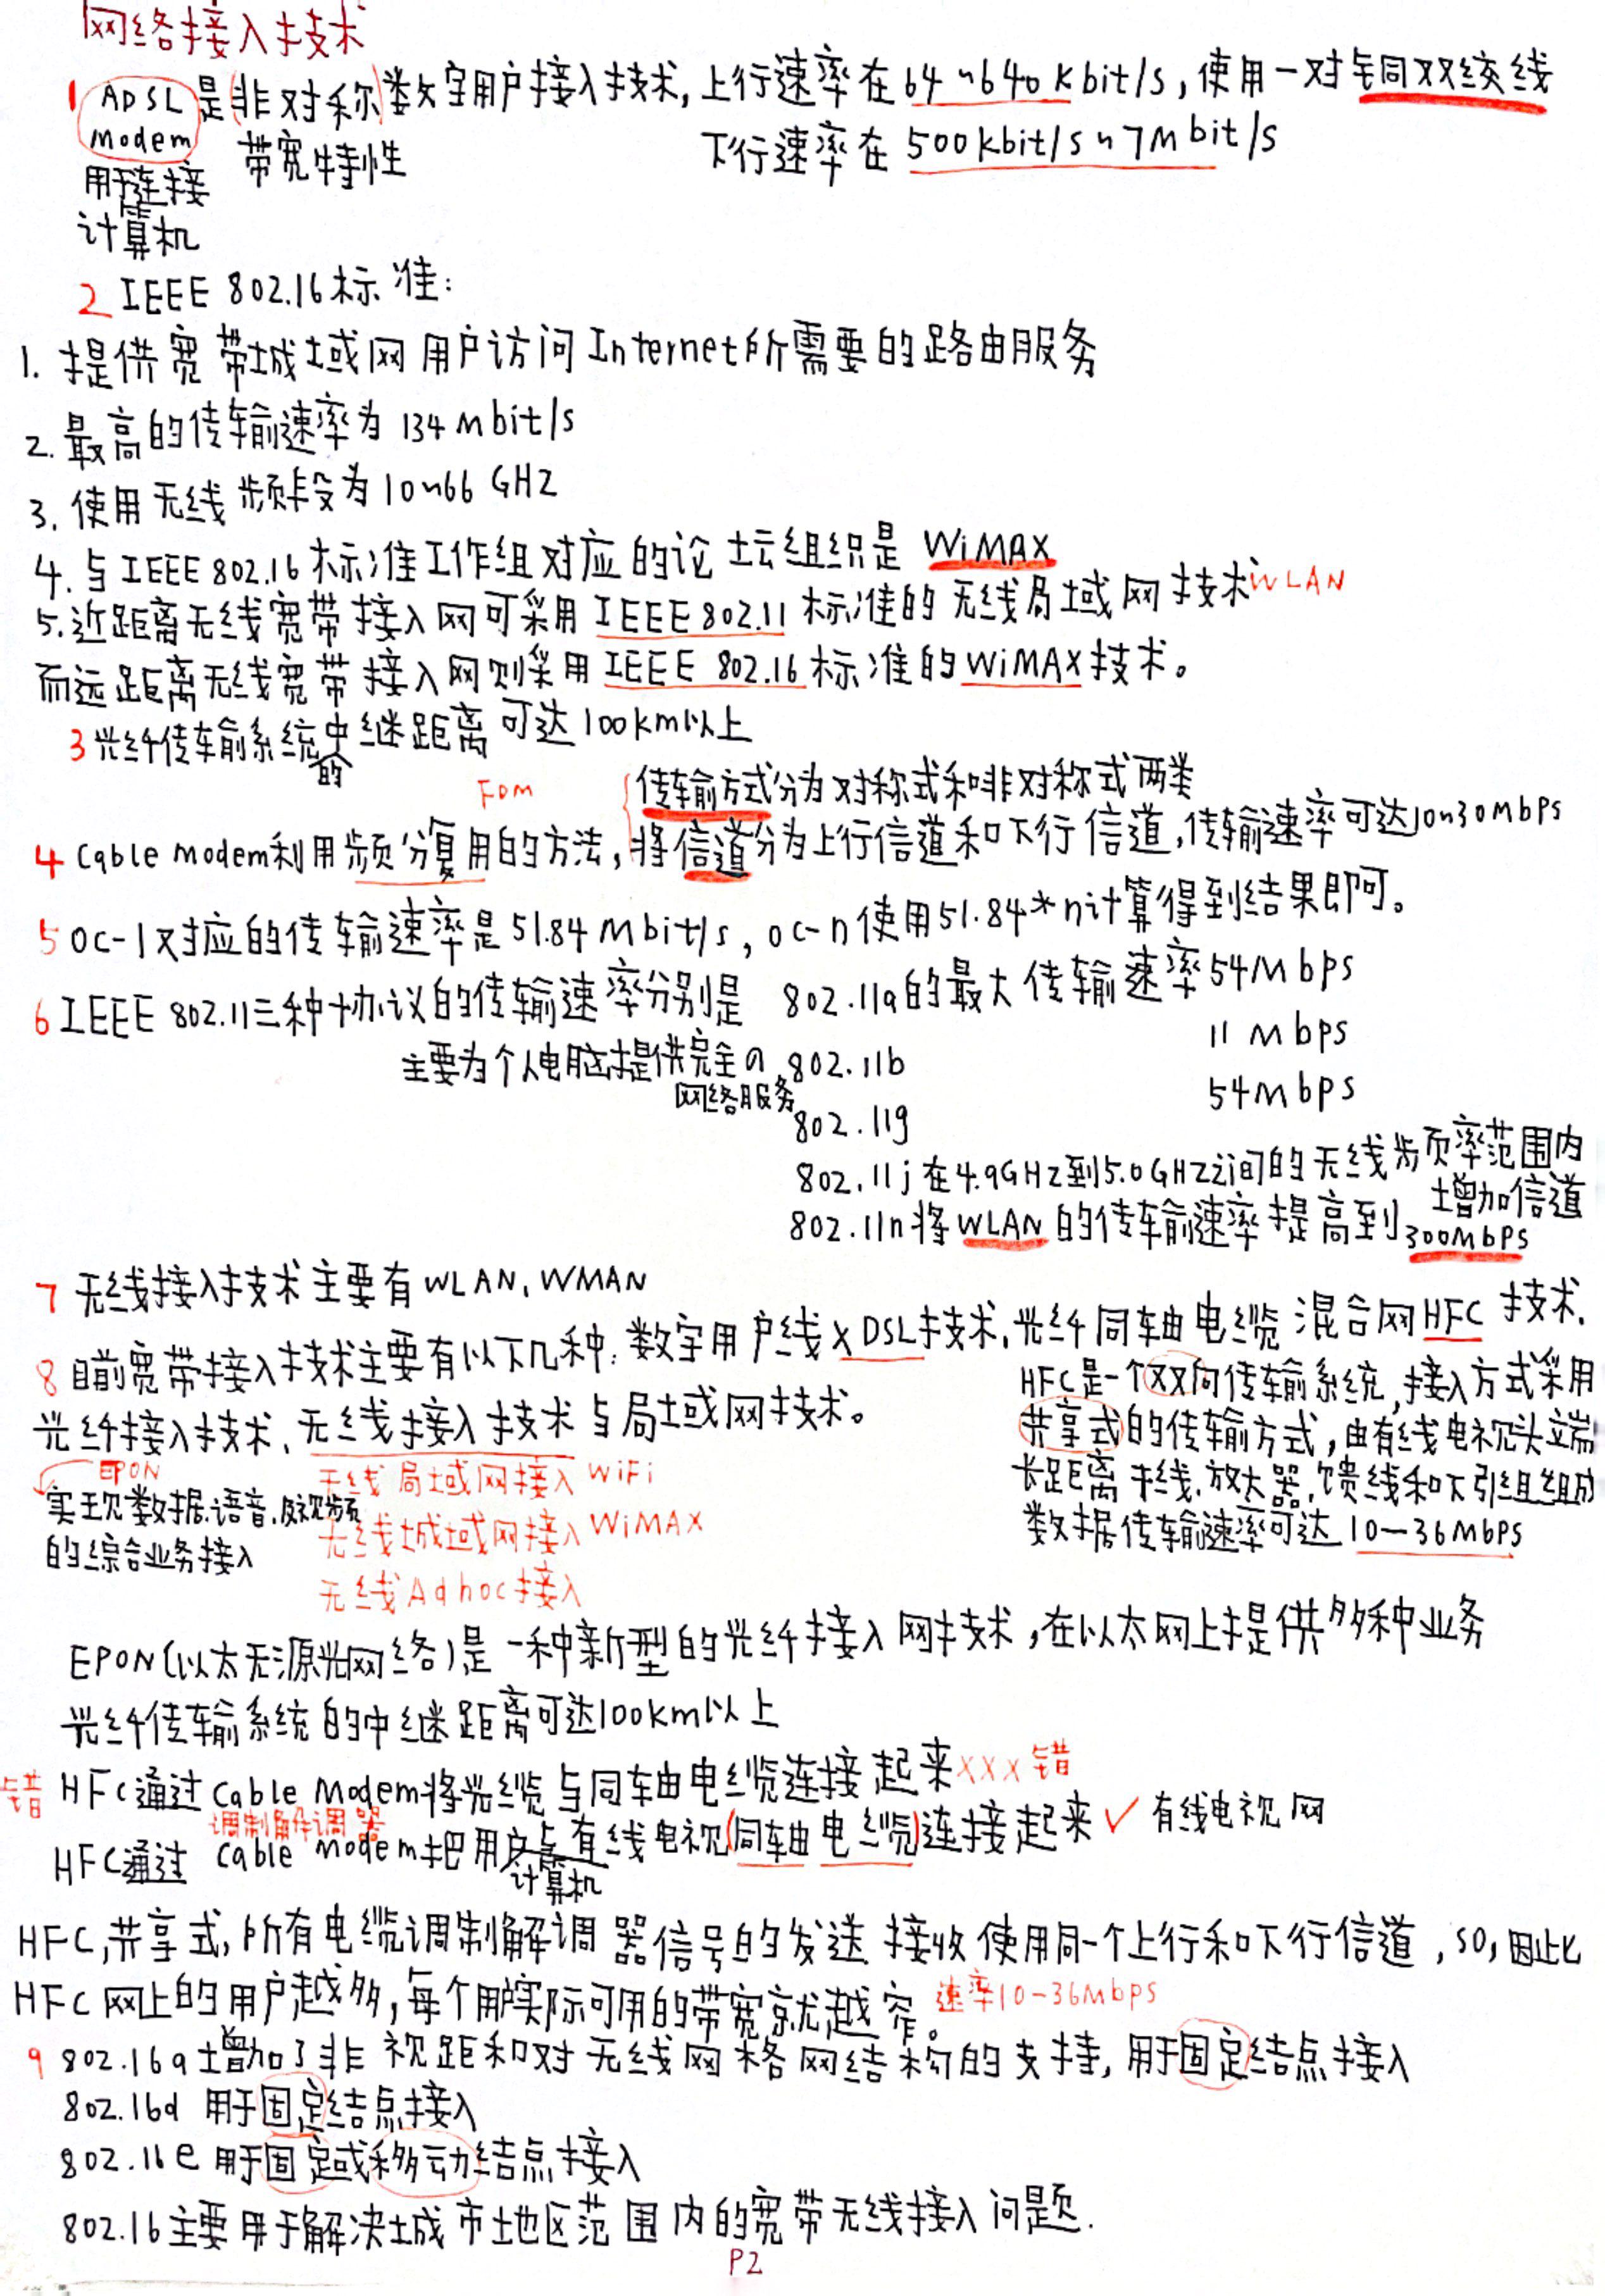 网络接入技术
1 ADSL Modem 是(非对称)数字用户接入技术,上行速率在64~640kbit/s,使用一对铜双绞线
用于连接计算机 带宽特性 下行速率在500kbit/s~7Mbit/s
2 IEEE 802.16标准:
1. 提供宽带城域网用户访问Internet所需要的路由服务
2. 最高的传输速率为134Mbit/s
3. 使用无线频段为10~66GHZ
4. 与IEEE802.16标准工作组对应的论坛组织是WiMAX
5. 近距离无线宽带接入网可采用IEEE802.11标准的无线局域网技术WLAN
而远距离无线宽带接入网则采用IEEE 802.16标准的WiMAX技术。
3 光纤传输系统的中继距离可达100km以上
FDM 传输方式分为对称式和非对称式两类
4 Cable modem利用频分复用的方法,将信道分为上行信道和下行信道,传输速率可达10~30Mbps
5 OC-1对应的传输速率是51.84Mbit/s,OC-n使用51.84*n计算得到结果即可。
6 IEEE 802.11三种协议的传输速率分别是 802.11a的最大传输速率54Mbps
主要为个人电脑提供完全的网络服务 802.11b 11Mbps
802.11g 54Mbps
802.11j在4.9GHZ到5.0GHZ之间的无线频率范围内增加信道
802.11n将WLAN的传输速率提高到300Mbps
7 无线接入技术主要有WLAN、WMAN
8 目前宽带接入技术主要有以下几种:数字用户线xDSL技术、光纤同轴电缆混合网HFC技术、
光纤接入技术、无线接入技术与局域网技术。
EPON
实现数据、语音、及视频
的综合业务接入
无线局域网接入 WiFi
无线城域网接入 WiMAX
无线Ad hoc接入
HFC是一个双向传输系统,接入方式采用
共享式的传输方式,由有线电视头端
长距离干线、放大器、馈线和下引线组成
数据传输速率可达10—36Mbps
EPON(以太无源光网络)是一种新型的光纤接入网技术,在以太网上提供多种业务
光纤传输系统的中继距离可达100km以上
错 HFC通过Cable Modem将光缆与同轴电缆连接起来XXX错
调制解调器
HFC通过 Cable Modem把用户计算机与有线电视(同轴电缆)连接起来✓ 有线电视网
HFC,共享式,所有电缆调制解调器信号的发送接收使用同一个上行和下行信道,so,因此
HFC网上的用户越多,每个用户实际可用的带宽就越窄。速率10-36Mbps
9 802.16a增加了非视距和对无线网格网结构的支持,用于固定结点接入
802.16d 用于固定结点接入
802.16e 用于固定或移动结点接入
802.16主要用于解决城市地区范围内的宽带无线接入问题.
P2